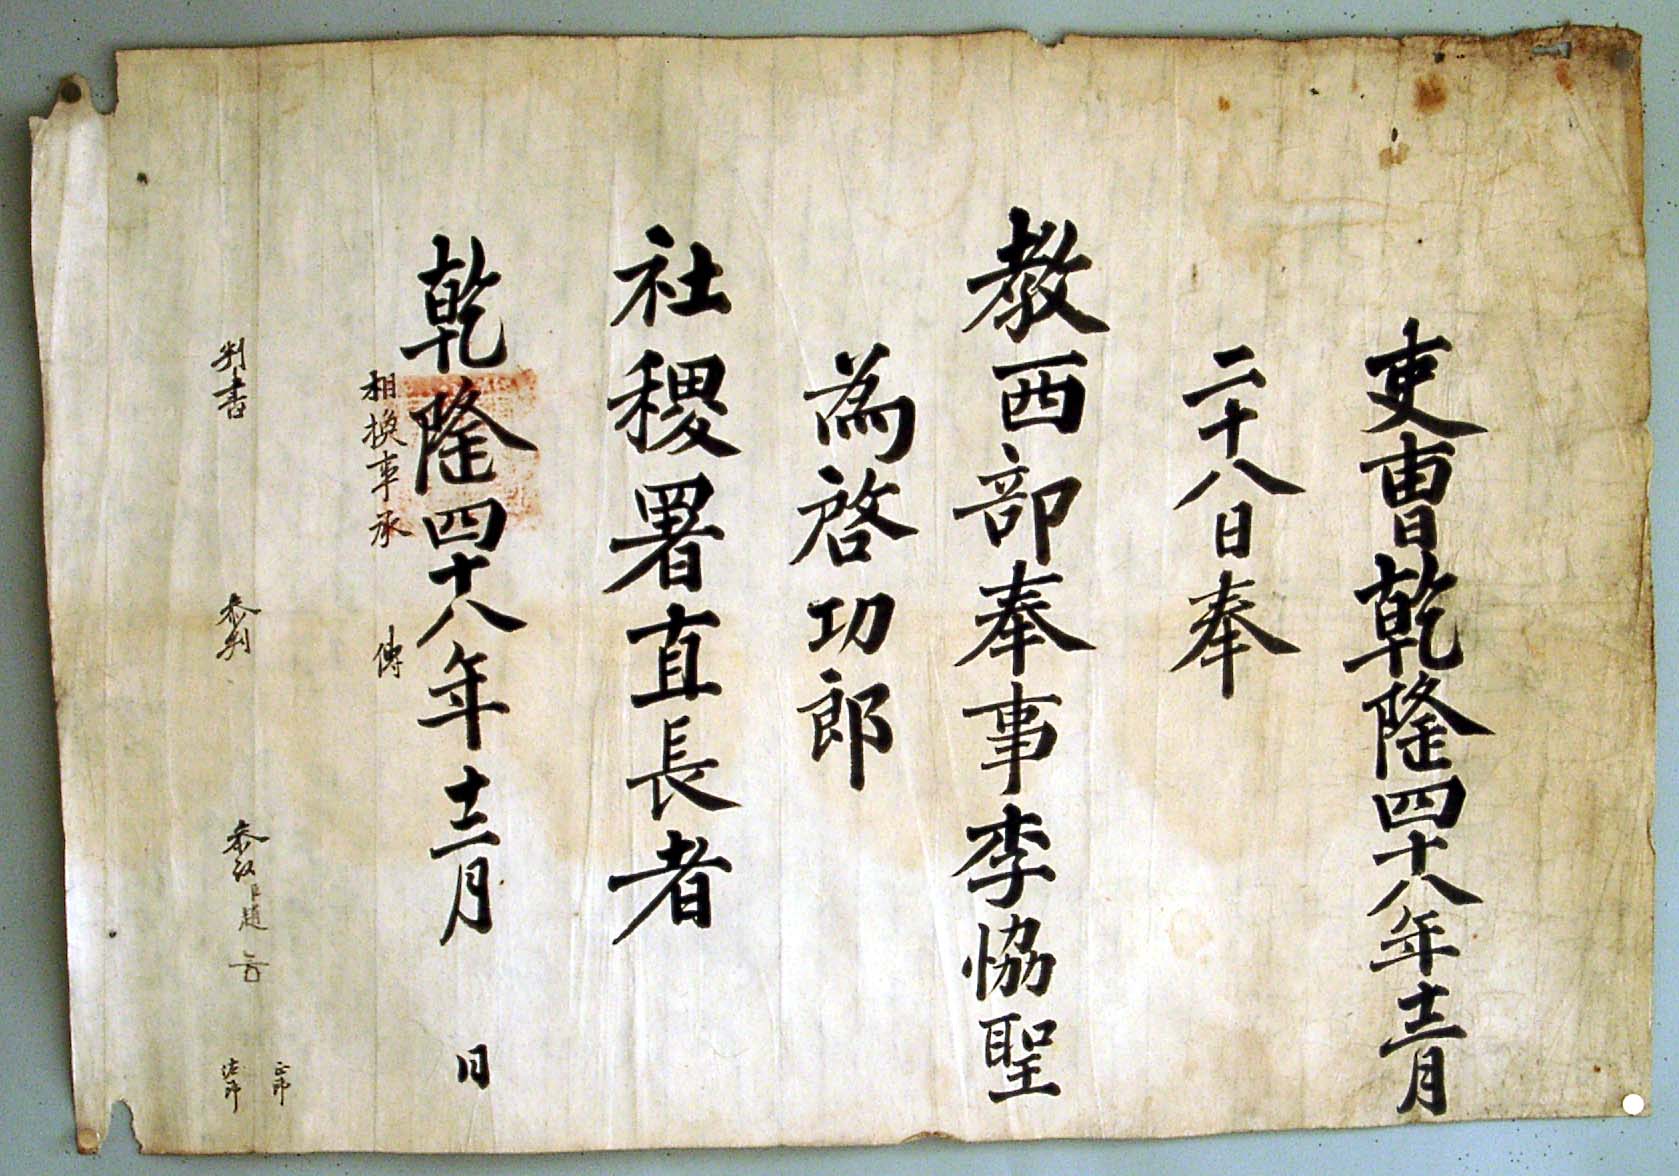 吏曹乾隆四十八年十二月
二十八日奉
教西部奉事李協聖
為啓功郎
社稷署直長者
乾隆四十八年十二月 日
相換事承 傳
判書 参判 参議 趙 正郎
佐郎